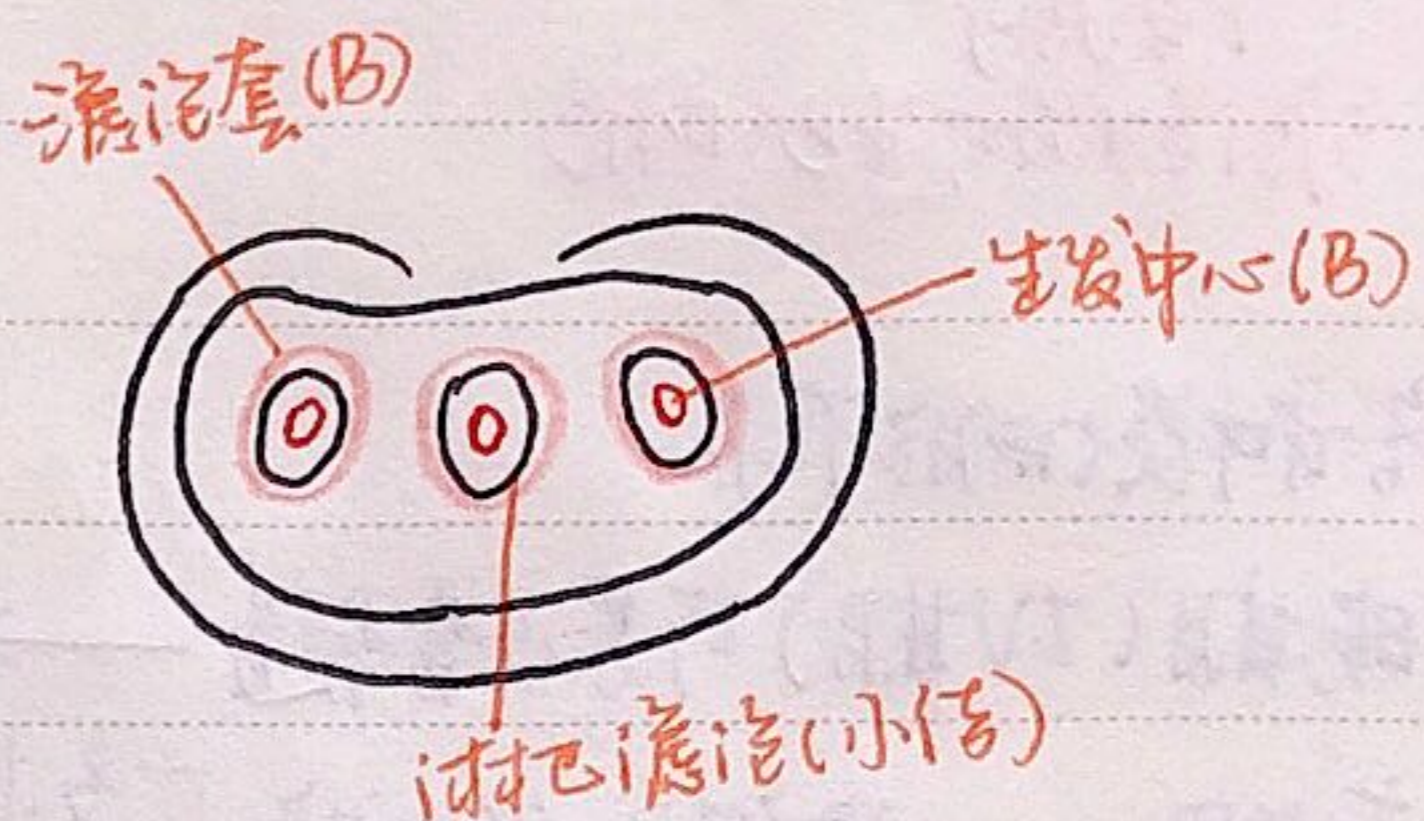 滤泡套(B)
生发中心(B)
淋巴滤泡(小结)